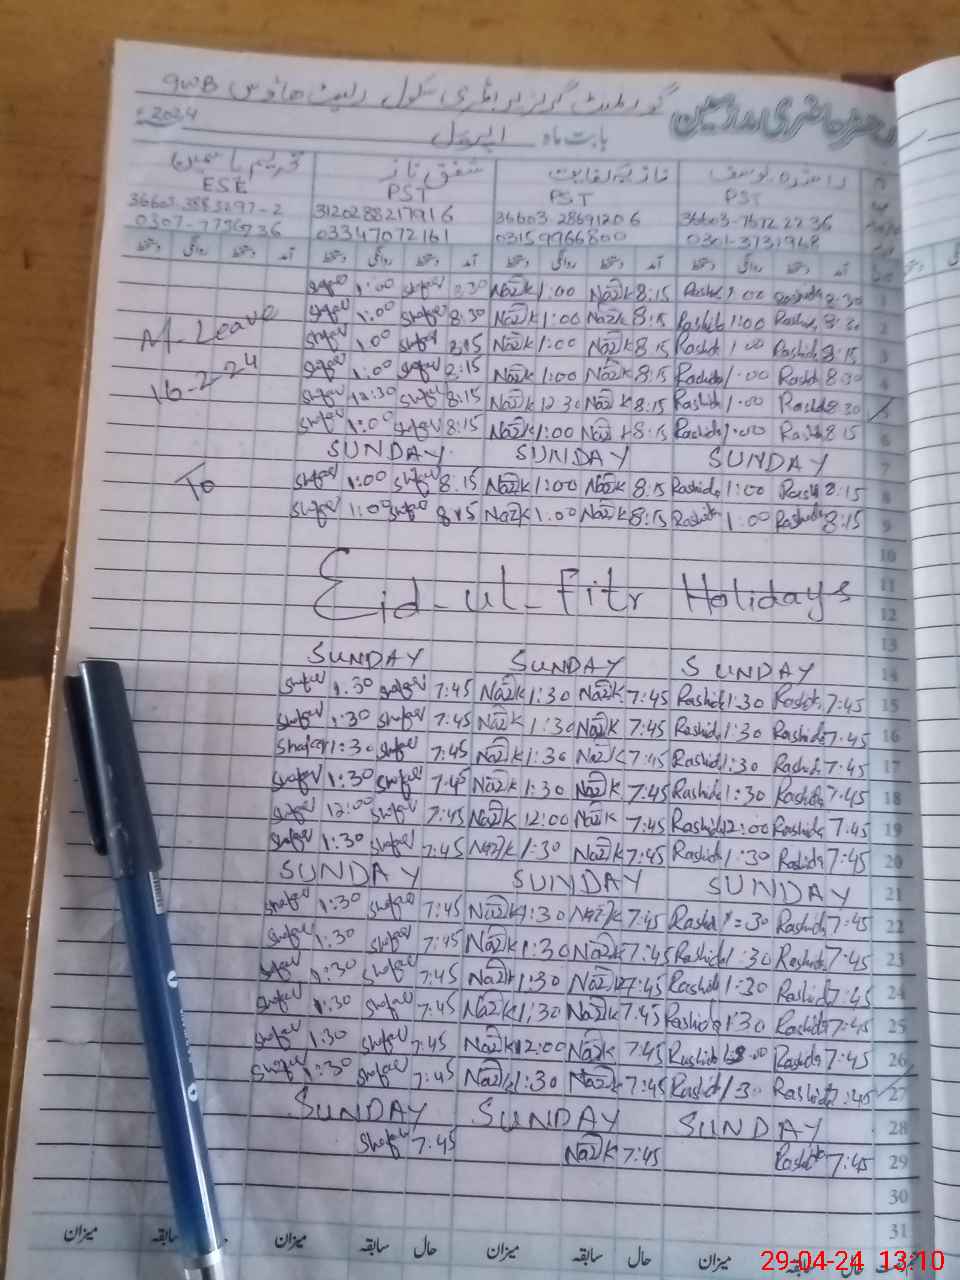 گورنمنٹ گرلز پرائمری سکول رلیٹ ھاوس GWB
حاضری مدرسین
2024
بابت ماہ اپریل
راشدہ یوسف نازیہ کفایت شفق ناز
PST PST PST ESE
0301-3731948 03159966800 03347072161
آمد دستخط روانگی دستخط آمد دستخط روانگی دستخط آمد دستخط روانگی دستخط آمد دستخط روانگی دستخط
1:00 Nazk 1:00 Nazk 8:15 Rashid 1:00 Rashida 8:30 1
Shafaq 1:00 Shafaq 8:30 Nazk 1:00 Nazk 8:15 Rashida 1:00 Rashida 8:30 2
M-Leave
Shafaq 1:00 Shafaq 8:15 Nazk 1:00 Nazk 8:15 Rashida 1:00 Rashida 8:15 3
Shafaq 1:00 Shafaq 8:15 Nazk 1:00 Nazk 8:15 Rashida 1:00 Rashida 8:30 4
16-2-24
Shafaq 12:30 Shafaq 8:15 Nazk 12:30 Nazk 8:15 Rashida 1:00 Rashida 8:30 5
Shafaq 1:00 Shafaq 8:15 Nazk 1:00 Nazk 8:15 Rashida 1:00 Rashida 8:15 6
SUNDAY SUNDAY SUNDAY 7
To
Shafaq 1:00 Shafaq 8:15 Nazk 1:00 Nazk 8:15 Rashida 1:00 Rashida 8:15 8
Shafaq 1:00 Shafaq 8:15 Nazk 1:00 Nazk 8:15 Rashida 1:00 Rashida 8:15 9
10
Eid-ul-Fitr Holidays 11
12
13
SUNDAY SUNDAY SUNDAY 14
Shafaq 1:30 Shafaq 7:45 Nazk 1:30 Nazk 7:45 Rashida 1:30 Rashida 7:45 15
Shafaq 1:30 Shafaq 7:45 Nazk 1:30 Nazk 7:45 Rashida 1:30 Rashida 7:45 16
Shafaq 1:30 Shafaq 7:45 Nazk 1:30 Nazk 7:45 Rashida 1:30 Rashida 7:45 17
Shafaq 1:30 Shafaq 7:45 Nazk 1:30 Nazk 7:45 Rashida 1:30 Rashida 7:45 18
Shafaq 12:00 Shafaq 7:45 Nazk 12:00 Nazk 7:45 Rashida 12:00 Rashida 7:45 19
Shafaq 1:30 Shafaq 7:45 Nazk 1:30 Nazk 7:45 Rashida 1:30 Rashida 7:45 20
SUNDAY SUNDAY SUNDAY 21
Shafaq 1:30 Shafaq 7:45 Nazk 1:30 Nazk 7:45 Rashida 1:30 Rashida 7:45 22
Shafaq 1:30 Shafaq 7:45 Nazk 1:30 Nazk 7:45 Rashida 1:30 Rashida 7:45 23
Shafaq 1:30 Shafaq 7:45 Nazk 1:30 Nazk 7:45 Rashida 1:30 Rashida 7:45 24
Shafaq 1:30 Shafaq 7:45 Nazk 1:30 Nazk 7:45 Rashida 1:30 Rashida 7:45 25
Shafaq 1:30 Shafaq 7:45 Nazk 12:00 Nazk 7:45 Rashida Rashida 7:45 26
Shafaq 1:30 Shafaq 7:45 Nazk 1:30 Nazk 7:45 Rashida 1:30 Rashida 7:45 27
SUNDAY SUNDAY SUNDAY 28
Shafaq 7:45 Nazk 7:45 Rashida 7:45 29
30
31
حال سابقہ میزان حال سابقہ میزان حال سابقہ میزان
29-04-24 13:10